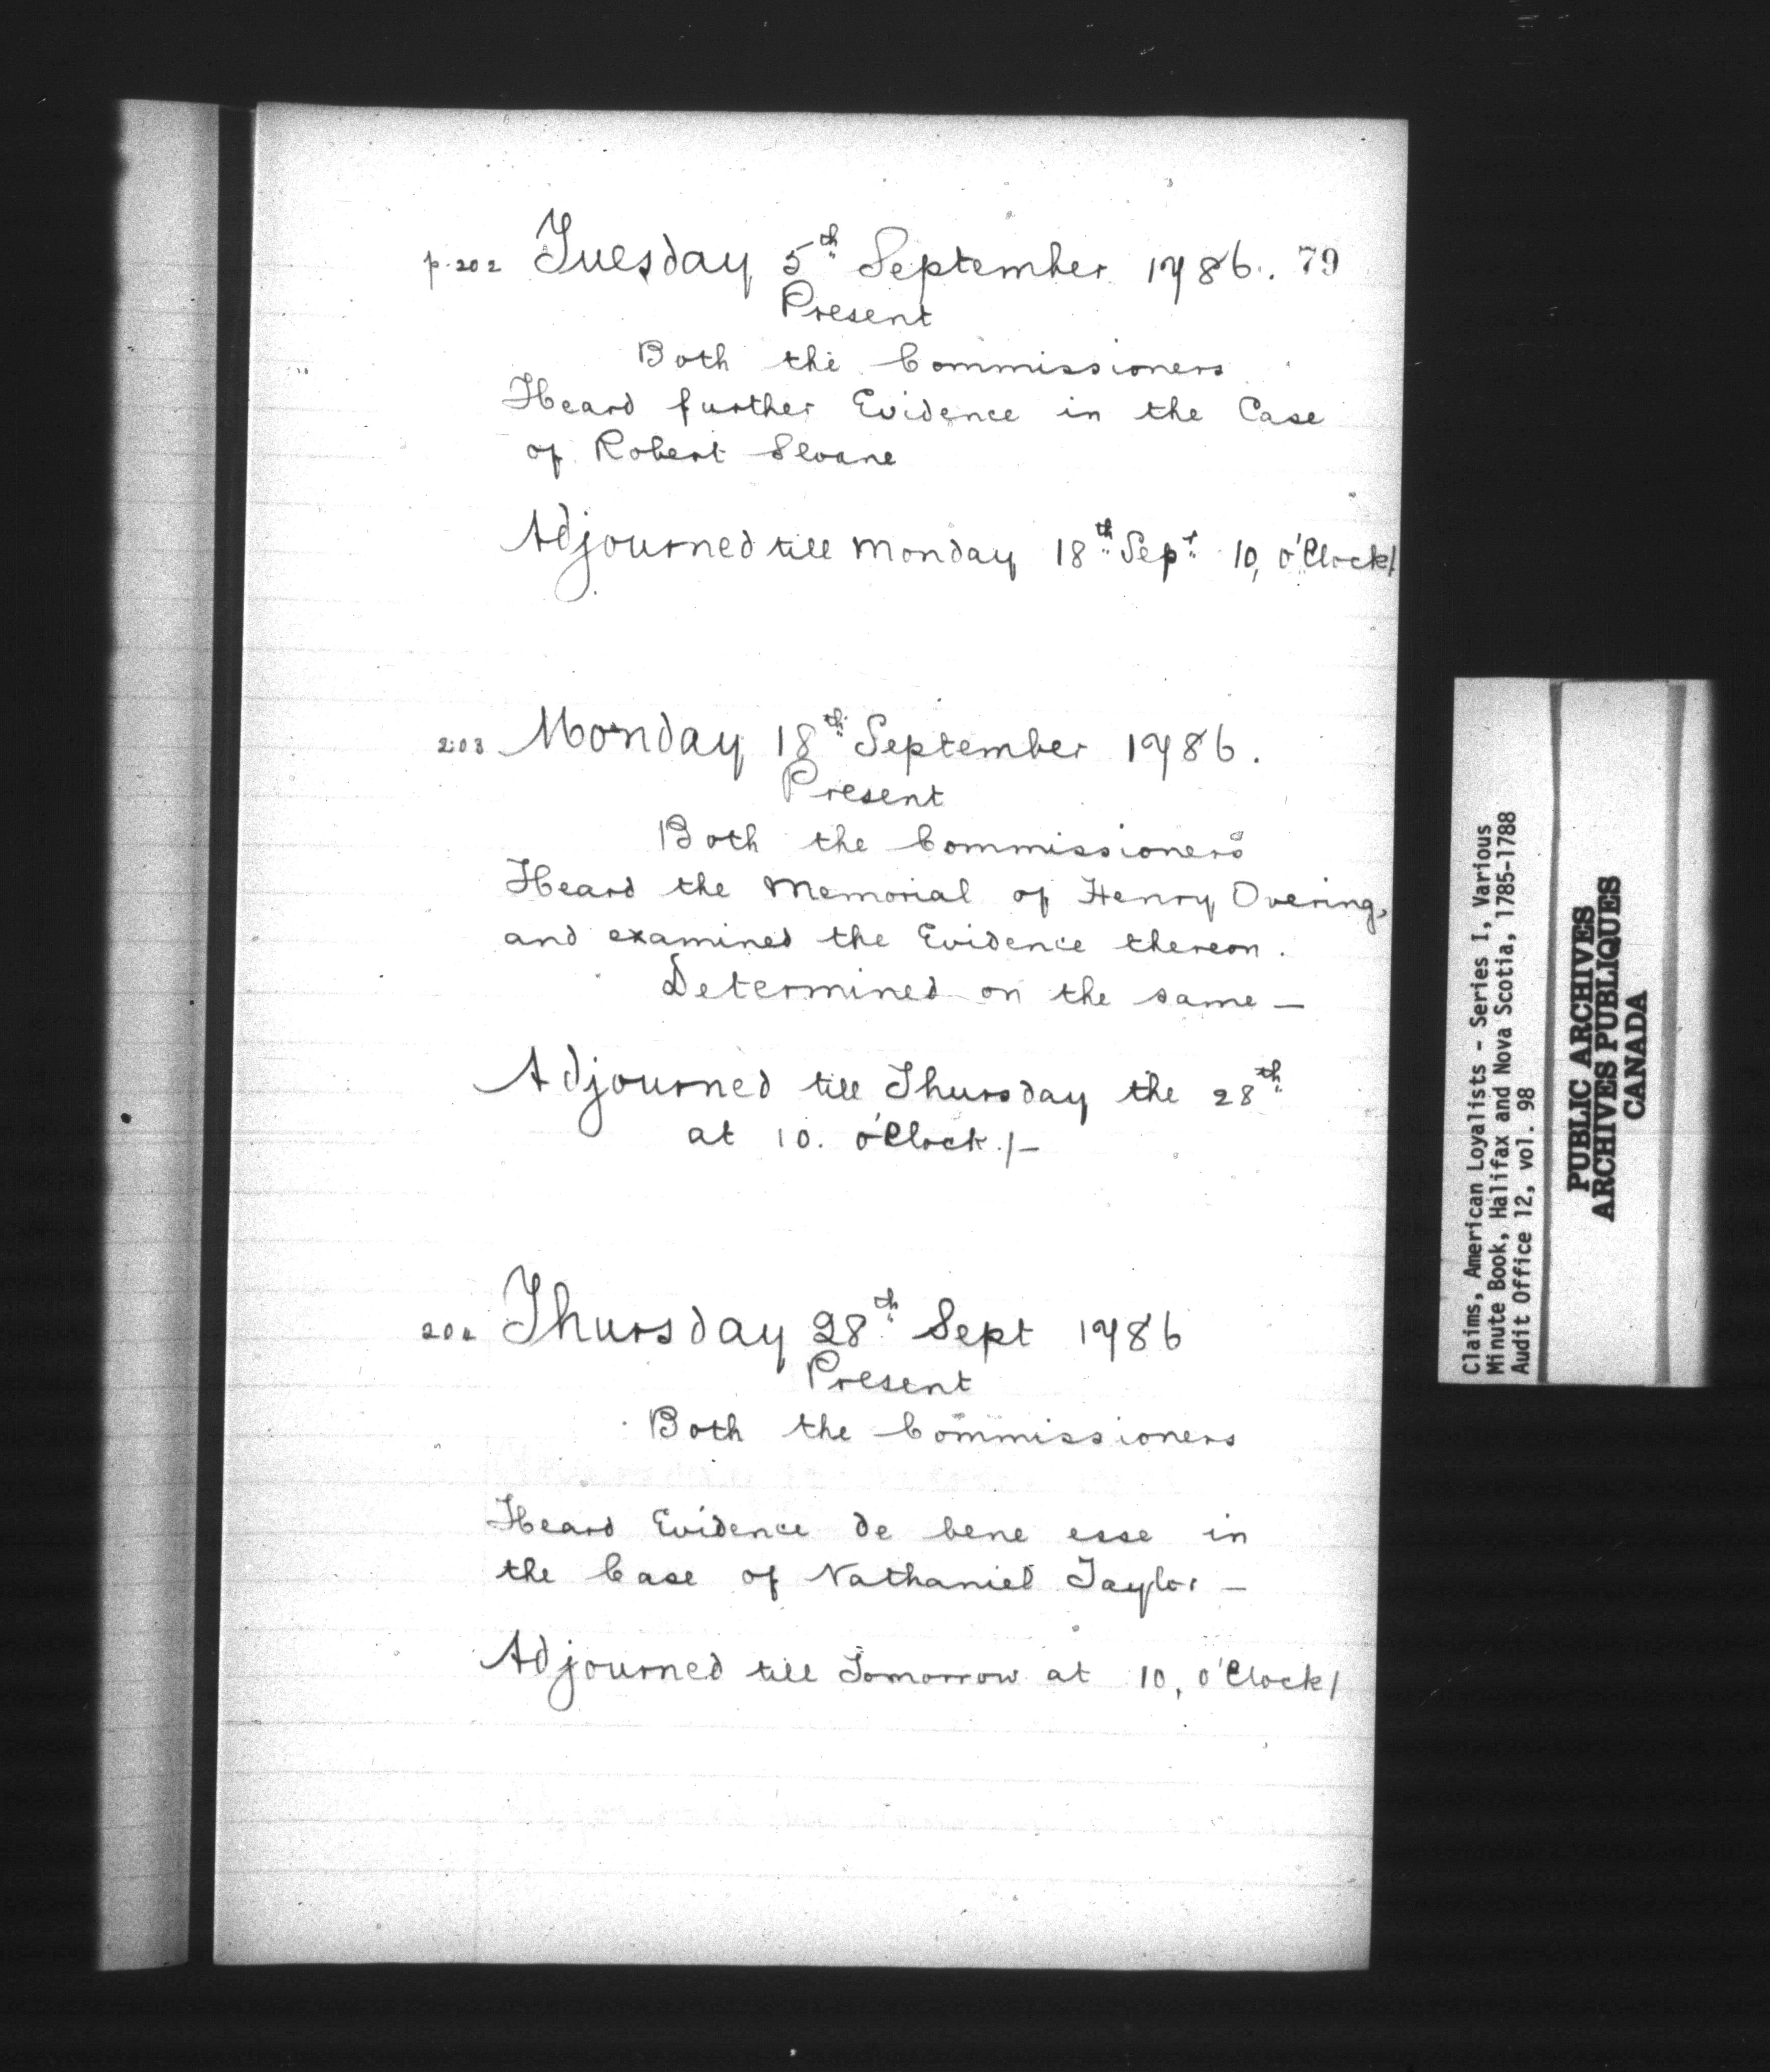 p. 202 Tuesday 5th September 1786. 79
Present
Both the Commissioners
Heard further Evidence in the Case
of Robert Sloane
Adjourned till Monday 18th Sept 10, o'Clock/
203 Monday 18th September 1786.
Present
Both the Commissioners
Heard the Memorial of Henry Overing,
and examined the Evidence thereon.
Determined on the same —
Adjourned till Thursday the 28th
at 10. o'Clock./—
204 Thursday 28th Sept 1786
Present
Both the Commissioners
Heard Evidence de bene esse in
the Case of Nathaniel Taylor —
Adjourned till Tomorrow at 10, o'Clock/
Claims, American Loyalists - Series I, Various
Minute Book, Halifax and Nova Scotia, 1785-1788
Audit Office 12, vol. 98
PUBLIC ARCHIVES
ARCHIVES PUBLIQUES
CANADA